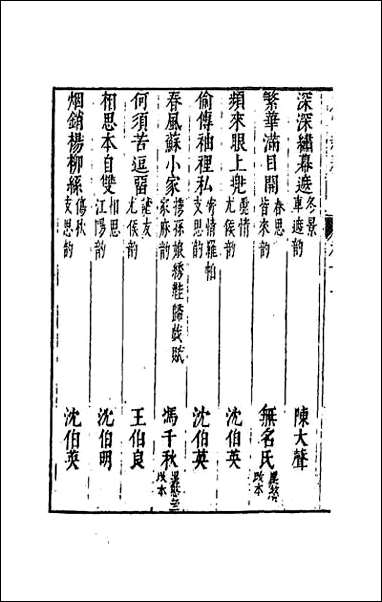 深深繡幕遮 冬景 車遮韵 陳大聲
繁華滿目開 春思 皆來韵 無名氏 改本
頻來眼上兠 麗情 尤侯韵 沈伯英
偷傳袖裡私 寄情羅帕 支思韵 沈伯英
春風蘇小家 携孫娘綉鞋歸戲賦 家麻韵 馮千秋 改本
何須苦逗畱 謔友 尤侯韵 王伯良
相思本自雙 相思 江陽韵 沈伯明
烟銷楊柳絲 傷秋 支思韵 沈伯英